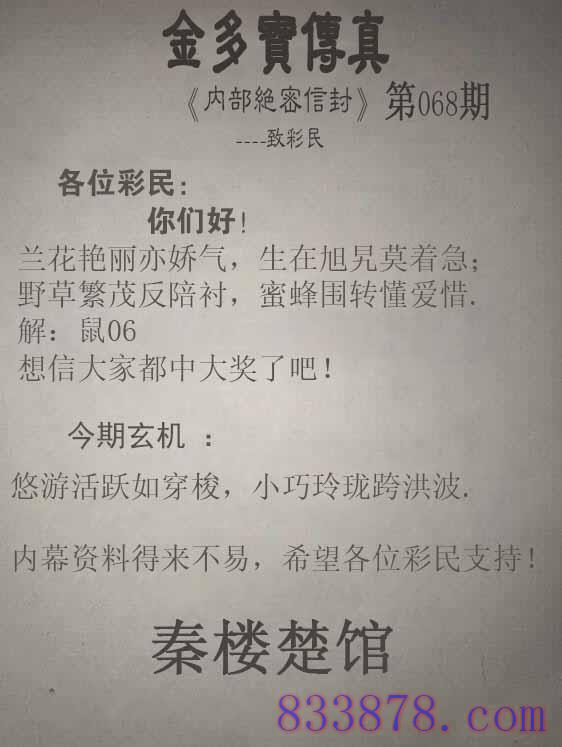 金多寶傳真
《内部絶密信封》第068期
----致彩民
各位彩民:
你们好!
兰花艳丽亦娇气，生在旭旯莫着急;
野草繁茂反陪衬，蜜蜂围转懂爱惜.
解：鼠06
想信大家都中大奖了吧!
今期玄机 :
悠游活跃如穿梭，小巧玲珑跨洪波.
内幕资料得来不易，希望各位彩民支持!
秦楼楚馆
833878.com